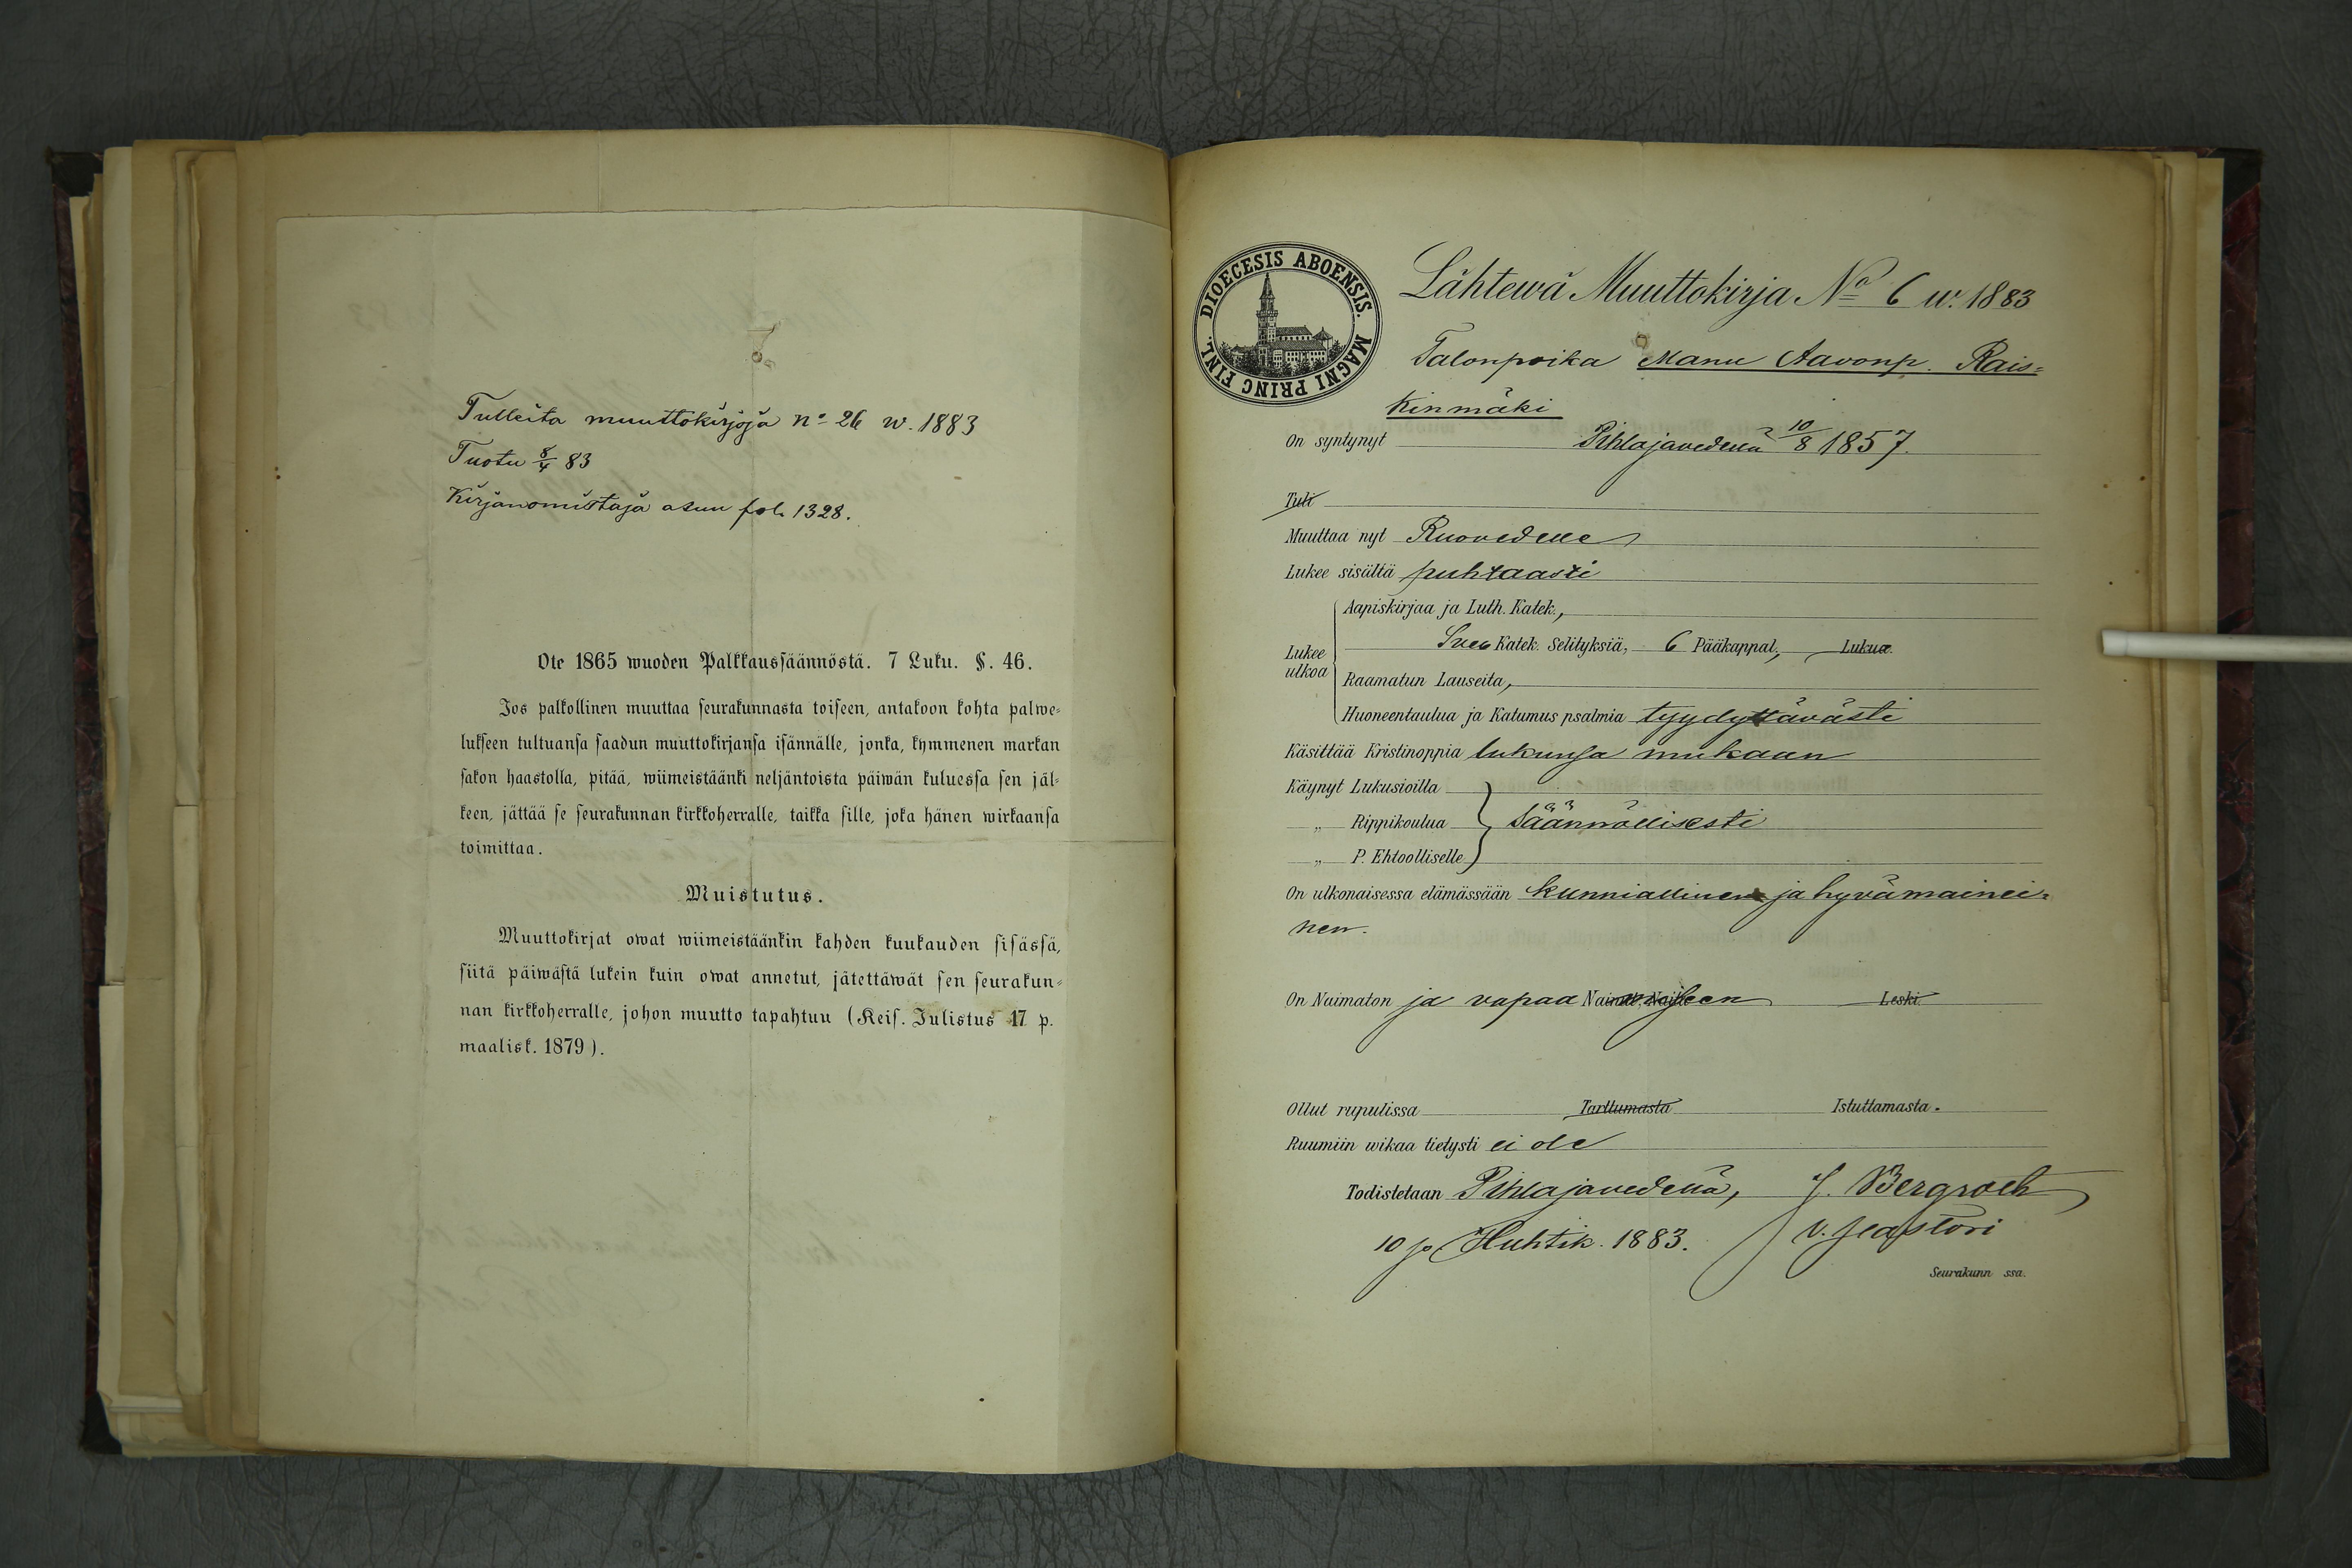 Tulleita muuttokirjoja nº 26 w. 1883
Tuotu 8/4 83
Kirjanomistaja asuu fol. 1328.
Ote 1865 wuoden Palkkaussäännöstä. 7 Luku. §. 46.
Jos palkollinen muuttaa seurakunnasta toiseen, antakoon kohta palwe-
lukseen tultuansa saadun muuttokirjansa isännälle, jonka, kymmenen markan
sakon haastolla, pitää, wiimeistäänki neljäntoista päiwän kuluessa sen jäl-
keen, jättää se seurakunnan kirkkoherralle, taikka sille, joka hänen wirkaansa
toimittaa.
Muistutus.
Muuttokirjat owat wiimeistäänkin kahden kuukauden sisässä,
siitä päiwästä lukein kuin owat annetut, jätettäwät sen seurakun-
nan kirkkoherralle, johon muutto tapahtuu (Keis. Julistus 17 p.
maalisk. 1879).
DIOECESIS ABOENSIS. MAGNI PRINC FINL.
Lähtewä Muuttokirja Nº 6 w. 1883
Talonpoika Manu Aavonp. Rais-
kinmäki
On syntynyt Pihlajavedellä 10/8 1857.
Tuli
Muuttaa nyt Ruovedelle
Lukee sisältä puhtaasti
Aapiskirjaa ja Luth. Katek.,
Lukee ulkoa
Sveb Katek. Selityksiä, 6 Pääkappal, Lukua.
Raamatun Lauseita,
Huoneentaulua ja Katumus psalmia tyydyttävästi
Käsittää Kristinoppia lukunsa mukaan
Käynyt Lukusioilla
„ Rippikoulua säännöllisesti
„ P. Ehtoolliselle
On ulkonaisessa elämässään kunniallinen ja hyvämainei-
nen.
On Naimaton ja vapaa Leski.
Ollut rupulissa Tarttumasta Istuttamasta.
Ruumiin wikaa tietysti ei ole
Todistetaan Pihlajavedellä, J. Bergroth
10 p. Huhtik. 1883. v. pastori
Seurakunn ssa.